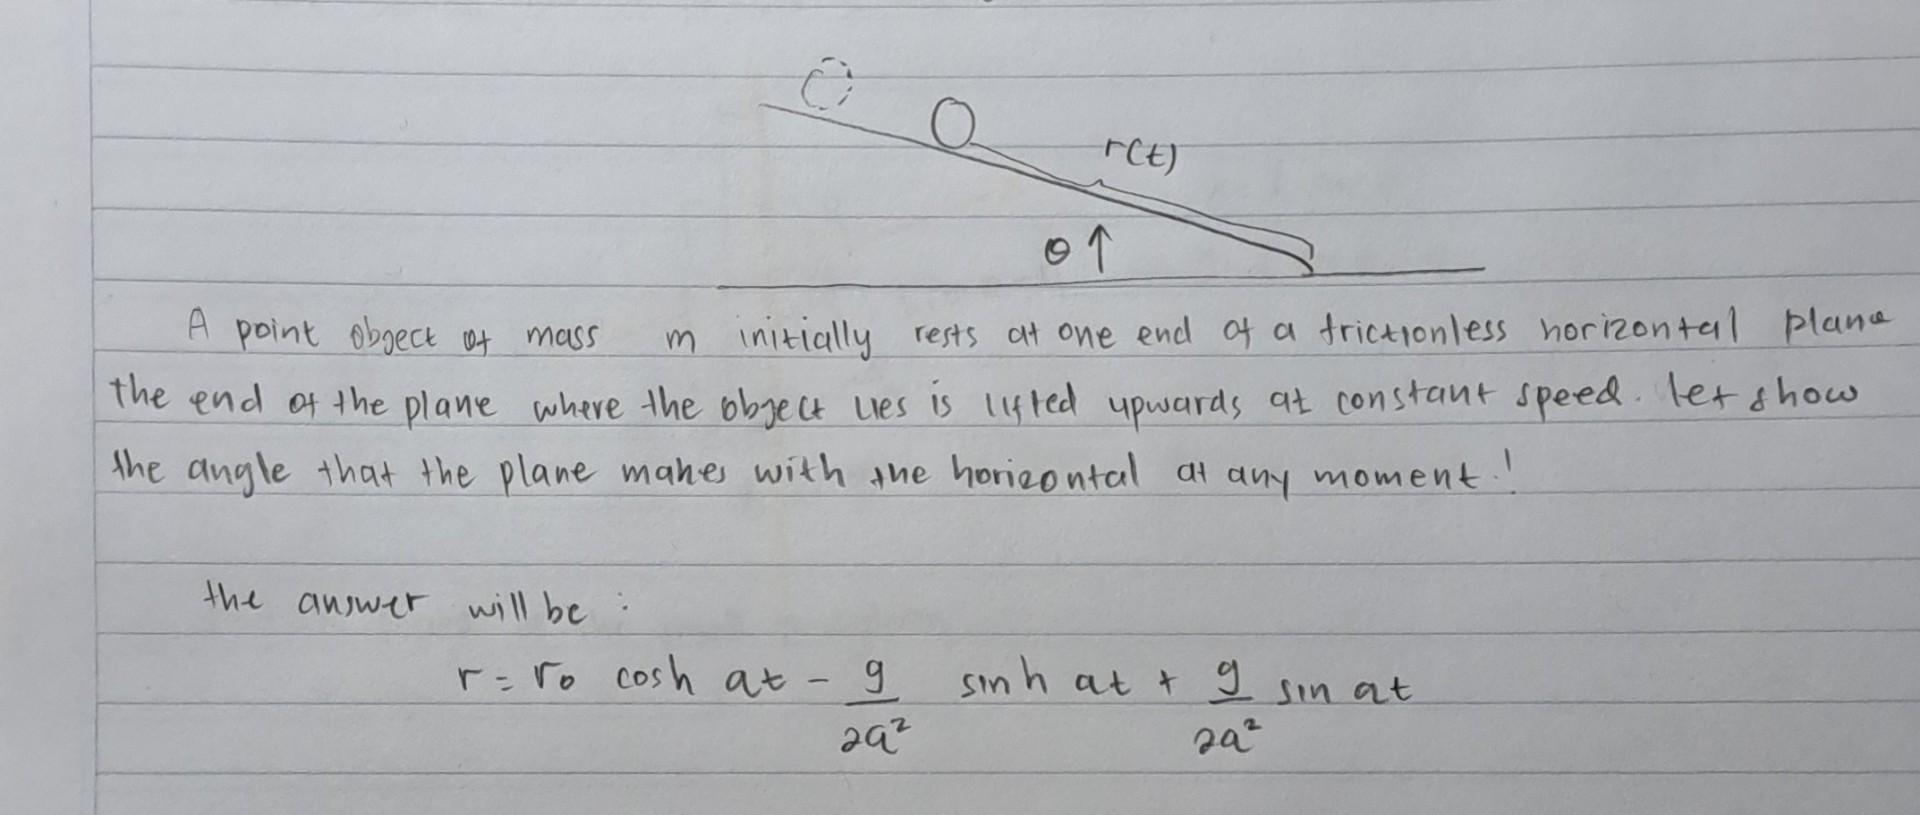 r(t)
θ ↑
A point obgect of mass m initially rests at one end of a frictionless horizontal plane
the end of the plane where the obgect lies is lifted upwards at constant speed. let show
the angle that the plane makes with the horizontal at any moment!
the answer will be :
r = r₀ cosh at - g/2a² sinh at + g/2a² sin at